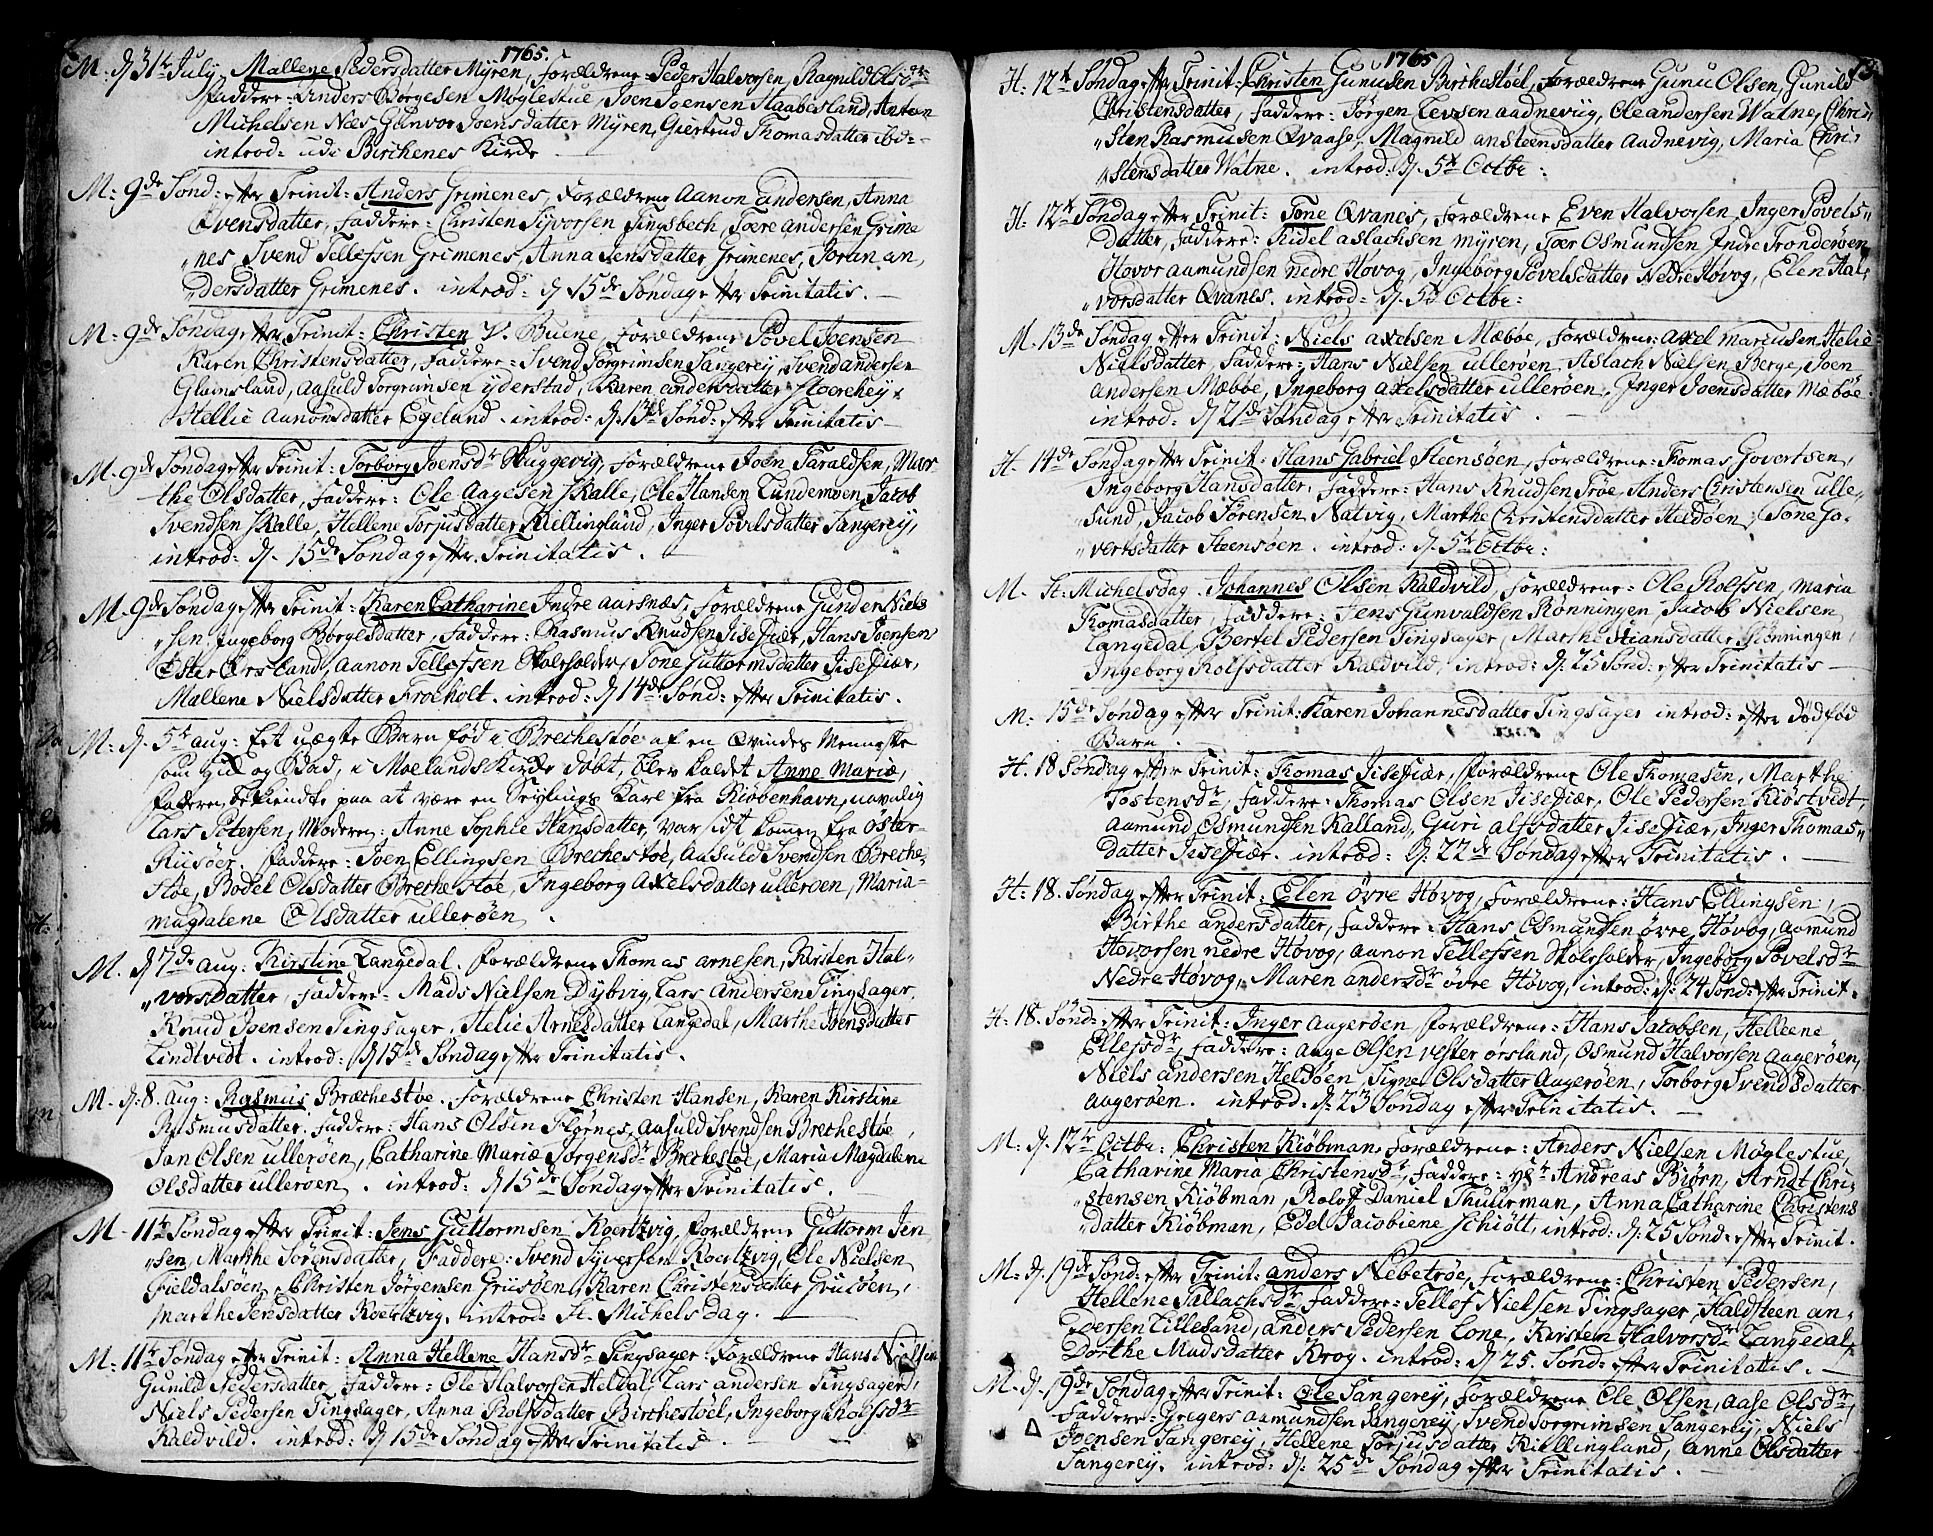 1765.
M. d. 31te July, Mallene Pedersdatter Myren, Forældrene Peder Halvorsen, Ragnild Olsdr
Faddere: Anders Børgesen Møglestue, Joen Joensen Haabesland, Antoen
Michelsen Næs, Gunvor Joensdatter Myren, Giertrud Thomasdatter ibd:
introd: udi Birchenes Kirke
M. 9de Sønd: efter Trinit: Anders Grimenes, Forældrene Aanon Andersen, Anna
Evensdatter, Faddere: Christen Syvorsen Tingsbech, Toere Andersen Grime
nes, Svend Tellefsen Grimenes, Anna Jensdatter Grimenes, Joran an,
dersdatter Grimenes. introd: d. 15de Søndag efter Trinitatis.
M. 9de Søndag efter Trinit: Christen V. Buene, Forældrene Povel Joensen
Karen Christensdatter, Faddere: Svend Torgrimsen Sangerey, Svend Andersen
Glamsland, Aasuld Torgrimsen Yderstad, Karen Andersdatter
Hellie Aanonsdatter Egeland. introd: d. 13de Sønd: efter Trinitatis
M. 9de Søndag efter Trinit: Torborg Joensdr Skuggevig, Forældrene Joen Taraldsen, Mar
the Olsdatter, Faddere: Ole Aagesen Skalle, Ole Hansen Lundemoen, Jacob
Svendsen Skalle, Hellene Torjusdatter Kiellingland, Inger Povelsdatter Sangerey,
introd: d. 15de Søndag efter Trinitatis.
M. 9de Søndag efter Trinit: Karen Catharine Indre Aarsnæs, Forældrene Gunder Niels
sen, Ingeborg Børgesdatter, Faddere: Rasmus Knudsen Isefiær, Hans Joensen
Øster Ørsland, Aanon Tellefsen Skoleholder, Tone Guttormsdatter Isefiær,
Mallene Nielsdatter Froeholt. introd: d. 14de Sønd: efter Trinitatis.
M. d. 5te aug: Eet uægte Barn fød i Brechestøe af en Qvindes Menneske
som Gul og Død, i Moelands Kirke døbt, blev kaldet Anne Marie,
Faderen, bekiendte paa at være en Seylings Karl fra Kiøbenhavn, navnlig
Lars Petersen, Moderen: Anne Sophie Hansdatter, var sidt kommen fra Øster-
Riisøer. Faddere: Joen Ellingsen Brechestøe, Aasuld Svendsen Breche-
støe, Bodel Olsdatter Brechestøe, Ingeborg Axelsdatter Ullerøen, Maria
Magdalene Olsdatter Ullerøen.
M. d. 7de aug: Kirstine Langedal. Forældrene Thomas Arnesen, Kirsten Hal-
vorsdatter, Faddere: Mads Nielsen Dybvig, Lars Andersen Tingsager,
Knud Joensen Tingsager, Helie Arnesdatter Langedal, Marthe Joensdatter
Lindtvedt. introd: d. 15de Søndag efter Trinitatis.
M. d. 8. Aug: Rasmus Bræchestøe. Forældrene Christen Hansen, Karen Kirstine
Rasmusdatter, Faddere: Hans Olsen Flørnes, Aasuld Svendsen Brechestøe,
Jan Olsen Ullerøen, Catharine Marie Jørgensdr Brechestøe, Maria Magdalene
Olsdatter Ullerøen. introd: d. 15de Søndag efter Trinitatis.
M. 11te Søndag efter Trinit: Jens Guttormsen Koertzvig, Forældrene Guttorm Jen
sen, Marthe Sørensdatter, Faddere: Svend Syversen Koertzvig, Ole Nielsen
Fieldalsøen, Christen Jørgensen Griisøen, Karen Christensdatter Griisøen,
Marthe Jensdatter Koertzvig. introd: St. Michels Dag.
M. 11te Søndag efter Trinit: Anna Hellene Hansdr Tingsager. Forældrene Hans Nielsen
Gunild Pedersdatter, Faddere: Ole Halvorsen Heldal, Lars andersen Tingsager,
Niels Pedersen Tingsager, Anna Rolfsdatter Birchestøel, Ingeborg Rolfsdr
Kaldvild. introd: d. 15de Søndag efter Trinitatis.
1765
H. 12te Søndag efter Trinit: Christen Gunusen Birchestøel, Forældrene Gunu Olsen, Gunild
Christensdatter, Faddere: Jørgen Levsen Aadnevig, Ole Andersen Watne, Chri-
sten Rasmusen Qvaase, Magnild ansteensdatter Aadnevig, Maria Chri-
stensdatter Watne. introd: d. 5te Octbr:
H. 12te Søndag efter Trinit: Tone Qvanes, Forældrene Even Halvorsen, Inger Povels
datter, Faddere: Kidel Aslachsen Myren, Toer Osmundsen Indre Trondeøen,
Hovor Aamundsen nedre Høvog, Ingeborg Povelsdatter Nedre Høvog, Elen Hal-
vorsdatter Qvanes. introd: d. 5te Octbr:
M. 13de Søndag efter Trinit: Niels Axelsen Mæbøe, Forældrene Axel Marcusen, Helie
Nielsdatter, Faddere: Hans Nielsen Ullerøen, Aslach Nielsen Berge, Joen
Andersen Mæbøe, Ingeborg Axelsdatter Ullerøen, Inger Joensdatter Mæbøe.
introd: d. 21de Søndag efter Trinitatis.
H. 14de Søndag efter Trinit: Hans Gabriel Steensøen, Forældrene: Thomas Govertsen,
Ingeborg Hansdatter. Faddere: Hans Knudsen Trøe, Anders Christensen Ulle-
sund, Jacob Sørensen Natvig, Marthe Christensdatter Heldøen, Tone Go-
vertsdatter Steensøen. introd: d. 5te Octbr:
M. St. Michelsdag. Johannes Olsen Kaldvild, Forældrene: Ole Rolfsen, Maria
Thomasdatter, Faddere: Jens Gunvaldsen Rønningen, Jacob Nielsen
Langedal, Bertel Pedersen Tingsager, Marthe Hansdatter Rønningen,
Ingeborg Rolfsdatter Kaldvild, introd: d. 25 Sønd: efter Trinitatis
M. 15de Søndag efter Trinit: Karen Johannesdatter Tingsager introd: efter dødfød
Barn.
H. 18 Søndag efter Trinit: Thomas Isefiær, Forældrene Ole Thomasen, Marthe
Tostensdr, Faddere: Thomas Olsen Isefiær, Ole Pedersen Kiøstvedt,
Aamund Osmundsen Kalland, Guri Alfsdatter Isefiær, Inger Thomas
datter Isefiær. introd: d. 22de Søndag efter Trinitatis.
H. 18. Søndag efter Trinit: Elen øvre Høvog, Forældrene: Hans Ellingsen,
Birthe andersdatter, Faddere: Hans Osmundsen øvre Høvog, Aamund
Hovorsen nedre Høvog, Aanon Tellefsen Skoleholder, Ingeborg Povelsdr
Nedre Høvog, Maren andersdr øvre Høvog, introd: d. 24 Sønd: efter Trinit.
H. 18. Sønd: efter Trinit: Inger Aagerøen, Forældrene: Hans Jacobsen, Helleene
Ellefsdr, Faddere: Aage Olsen Vester Ørsland, Osmund Halvorsen Aagerøen,
Niels Andersen Heldøen, Signe Olsdatter Aagerøen, Torborg Svendsdatter
Aagerøen. introd: d. 23 Søndag efter Trinitatis.
M. d. 12te Octbr: Christen Kiøbman, Forældrene: Anders Nielsen Møglestue,
Catharine Maria Christensdr, Faddere: Hr Andreas Biørn, Arndt Chri-
stensen Kiøbman, Rolof Daniel Thuurman, Anna Catharine Christens
datter Kiøbman, Edel Jacobiene Schiøtt, introd: d. 25 Sønd: efter Trinit.
M. d. 19de Sønd: efter Trinit: Anders Nebetrøe, Forældrene: Christen Pedersen,
Hellene Tallachsdr, Faddere: Tellof Nielsen Tingsager, Kaldsteen an-
dersen Lillesand, Anders Pedersen Lone, Kirsten Halvorsdr Langedal,
Dorthe Madsdatter Krog. introd: d. 25. Sønd: efter Trinitatis.
M. d. 19de Søndag efter Trinit: Ole Sangerey, Forældrene Ole Olsen, Aase Olsdr,
Faddere: Gregers Aamundsen Sangerey, Svend Torgrimsen Sangerey, Niels
Joensen Sangerey, Hellene Torjusdatter Kiellingland, Anne Olsdatter
Sangerey. introd: d. 25de Søndag efter Trinitatis.